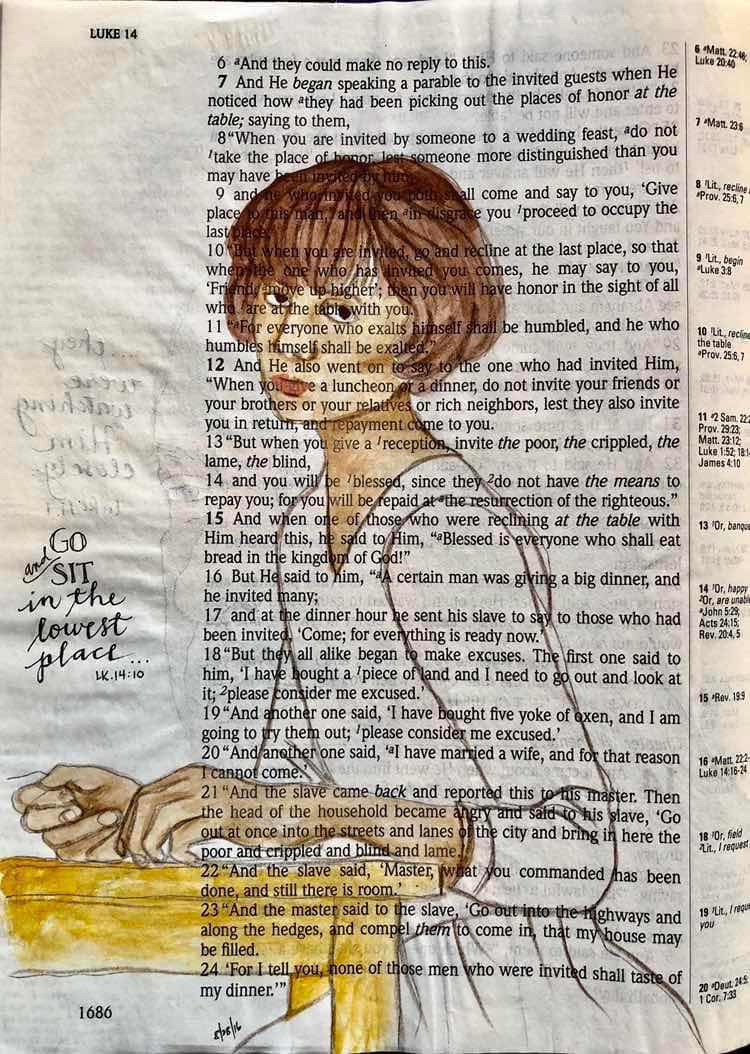 LUKE 14
6 aAnd they could make no reply to this.
7 And He began speaking a parable to the invited guests when He
noticed how athey had been picking out the places of honor at the
table; saying to them,
8 “When you are invited by someone to a wedding feast, ado not
1take the place of honor, lest someone more distinguished than you
may have been invited by him,
9 and he who invited you both shall come and say to you, ‘Give
place to this man,’ and then ain disgrace you 1proceed to occupy the
last place.
10 “But when you are invited, go and recline at the last place, so that
when the one who has invited you comes, he may say to you,
‘Friend, move up higher’; then you will have honor in the sight of all
who 1are at the table with you.
11 “aFor everyone who exalts himself shall be humbled, and he who
humbles himself shall be exalted.”
12 And He also went on to say to the one who had invited Him,
“When you give a luncheon or a dinner, do not invite your friends or
your brothers or your relatives or rich neighbors, lest they also invite
you in return, and repayment come to you.
13 “But when you give a 1reception, invite the poor, the crippled, the
lame, the blind,
14 and you will be 1blessed, since they 2do not have the means to
repay you; for you will be repaid at athe resurrection of the righteous.”
15 And when one of those who were reclining at the table with
Him heard this, he said to Him, “aBlessed is everyone who shall eat
bread in the kingdom of God!”
16 But He said to him, “aA certain man was giving a big dinner, and
he invited many;
17 and at the dinner hour he sent his slave to say to those who had
been invited, ‘Come; for everything is ready now.’
18 “But they all alike began to make excuses. The first one said to
him, ‘I have bought a 1piece of land and I need to go out and look at
it; 2please consider me excused.’
19 “And another one said, ‘I have bought five yoke of oxen, and I am
going to try them out; 1please consider me excused.’
20 “And another one said, ‘aI have married a wife, and for that reason
I cannot come.’
21 “And the slave came back and reported this to his master. Then
the head of the household became angry and said to his slave, ‘Go
out at once into the streets and lanes of the city and bring in here the
poor and crippled and blind and lame.’
22 “And the slave said, ‘Master, what you commanded has been
done, and still there is room.’
23 “And the master said to the slave, ‘Go out into the highways and
along the hedges, and compel them to come in, that my house may
be filled.
24 ‘For I tell you, none of those men who were invited shall taste of
my dinner.’”
GO
and
SIT
in the
lowest
place...
LK. 14:10
1686
6 aMatt. 22:46;
Luke 20:40
7 aMatt. 23:6
8 1Lit., recline
aProv. 25:6, 7
9 1Lit., begin
aLuke 3:8
10 1Lit., recline
the table
aProv. 25:6, 7
11 a2 Sam. 22:
Prov. 29:23;
Matt. 23:12;
Luke 1:52; 18:1
James 4:10
13 1Or, banque
14 1Or, happy
2Or, are unabl
aJohn 5:29;
Acts 24:15;
Rev. 20:4, 5
15 aRev. 19:9
16 aMatt. 22:2-
Luke 14:16-24
18 1Or, field
2Lit., I request
19 1Lit., I requ
you
20 aDeut. 24:5;
1 Cor. 7:33